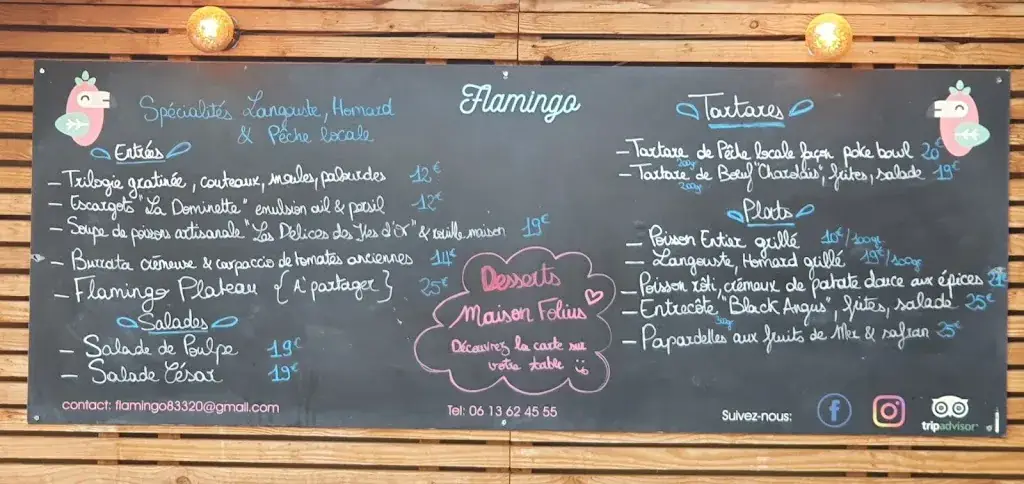 Flamingo
Spécialités Langouste, Homard
& Pêche locale
Entrées
- Trilogie gratinée, couteaux, moules, palourdes 12€
- Escargots "La Dominette" emulsion ail & persil 12€
- Soupe de poissons artisanale "Les Délices des Iles d'Or" & rouille maison 19€
- Burrata crémeuse & carpaccio de tomates anciennes 14€
- Flamingo Plateau {A' partager} 25€
Salades
- Salade de Poulpe 19€
- Salade César 19€
Desserts
Maison Folius
Découvrez la carte sur
votre table
Tartares
- Tartare de Pêche locale façon poke bowl 20€
200gr
- Tartare de Boeuf "Charolais", frites, salade 19€
200gr
Plats
- Poisson Entier grillé 10€/100gr
- Langouste, Homard grillé 19€/100gr
- Poisson rôti, crémeux de patate douce aux épices
- Entrecôte "Black Angus", frites, salade 25€
300gr
- Papardelles aux fruits de Mer & safran 25€
contact: flamingo83320@gmail.com
Tel: 06 13 62 45 55
Suivez-nous:
tripadvisor